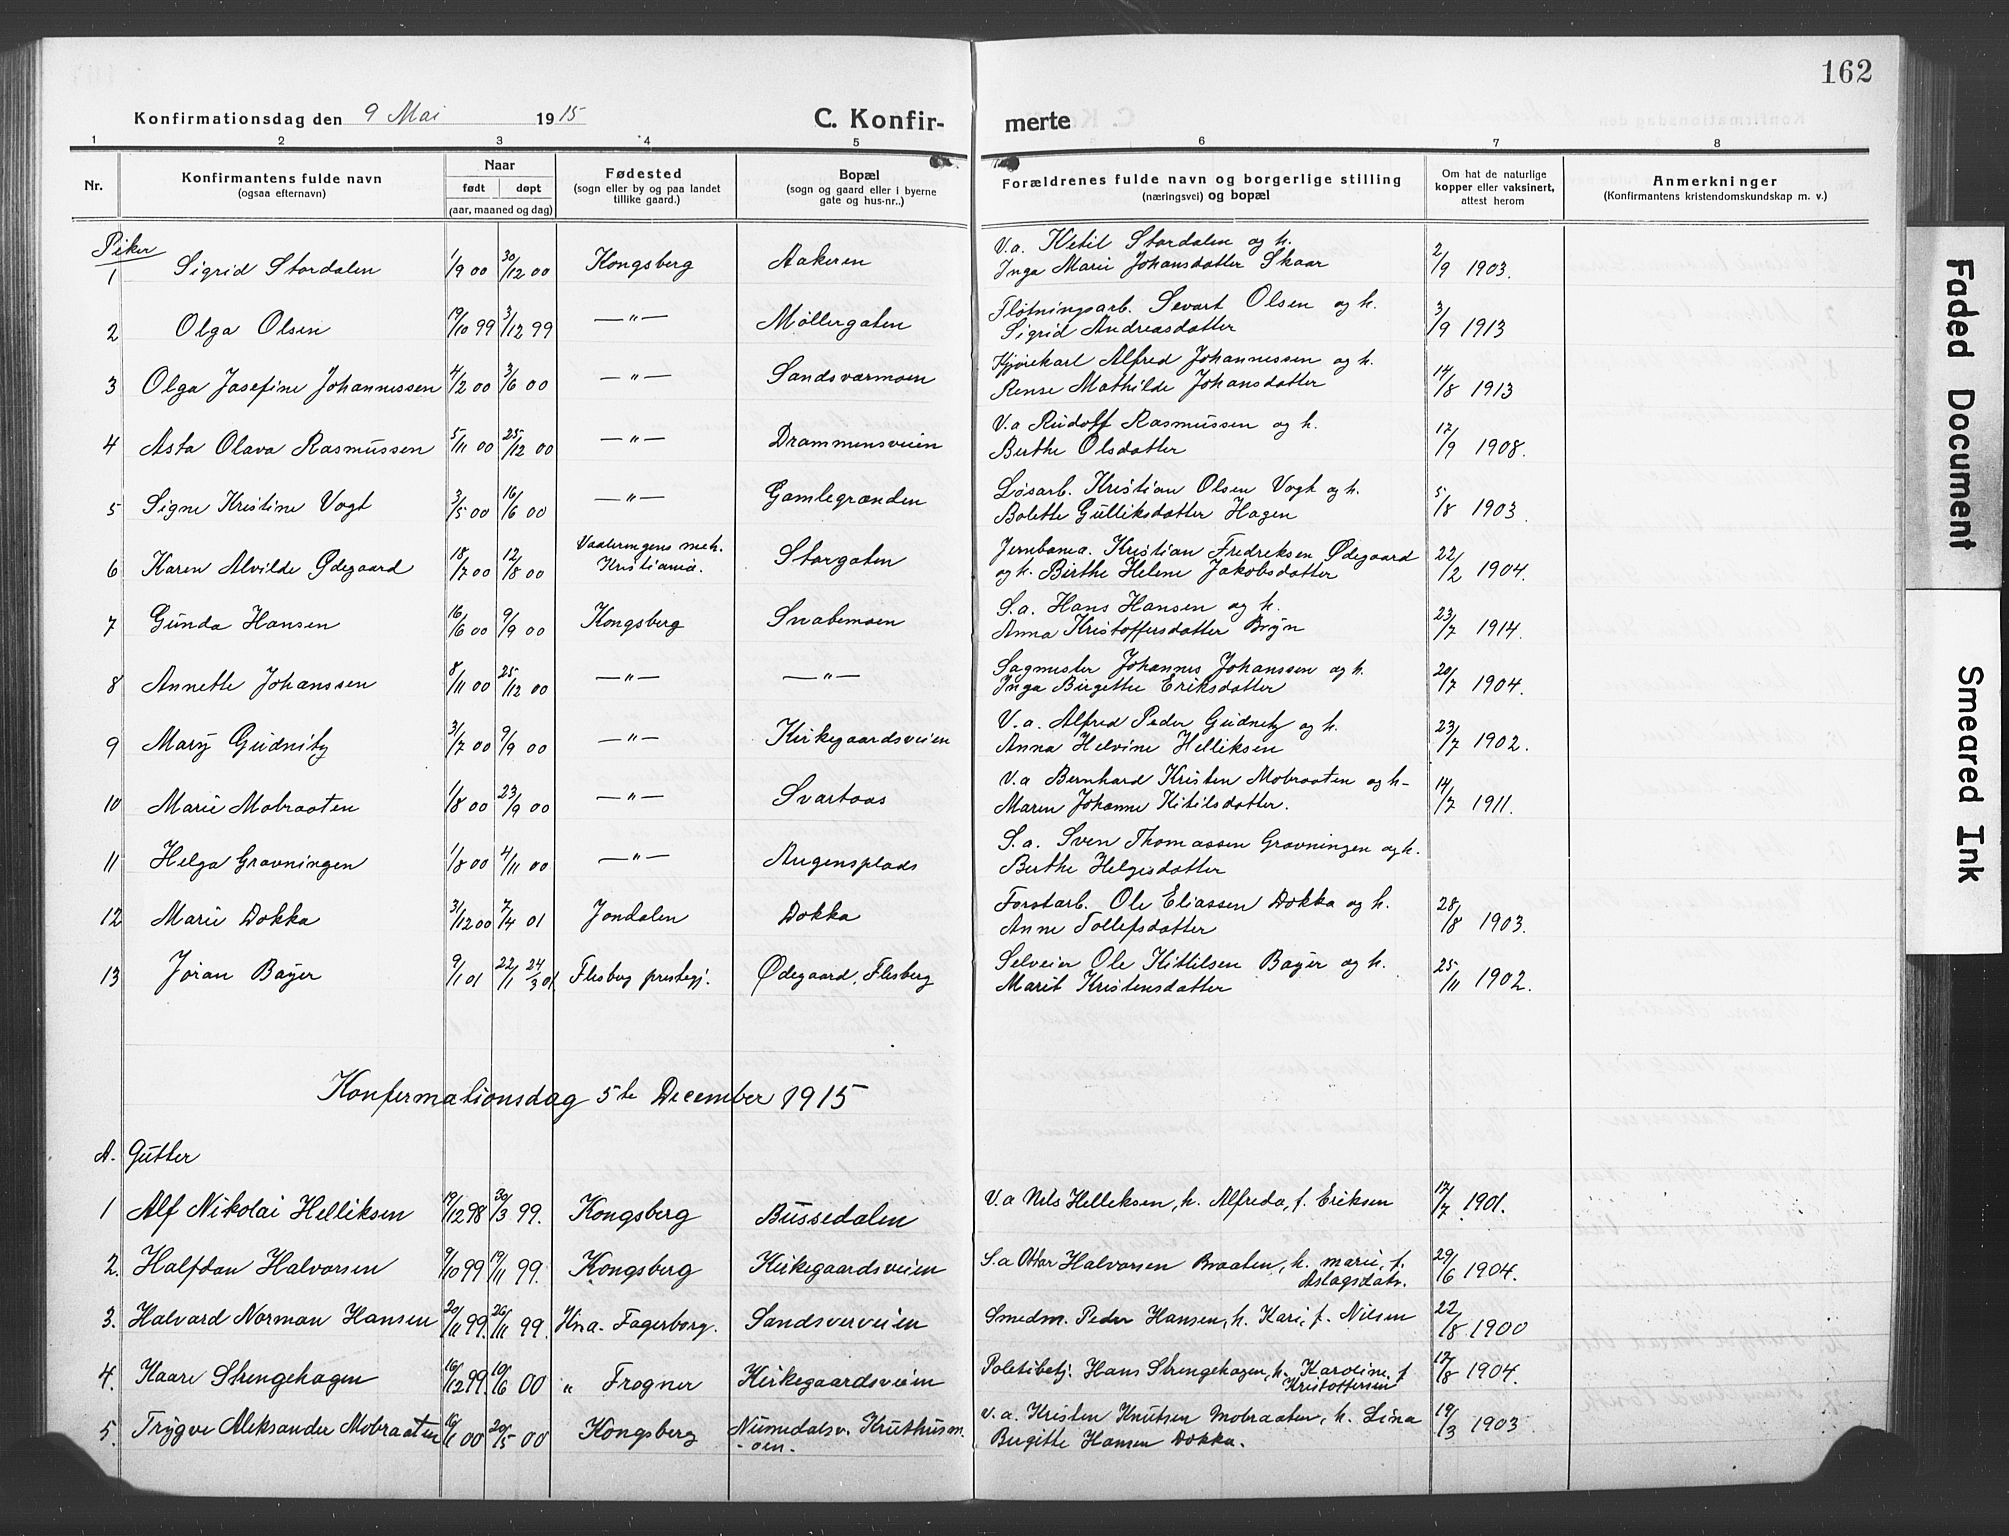 162
Konfirmationsdag den 9 Mai 1915
C. Konfir-
merte
1 2 3 4 5 6 7 8
Nr.
Konfirmantens fulde navn
(ogsaa efternavn)
Naar
født døpt
(aar, maaned og dag)
Fødested
(sogn eller by og paa landet
tillike gaard.)
Bopæl
(sogn og gaard eller i byerne
gate og hus-nr..)
Forældrenes fulde navn og borgerlige stilling
(næringsvei) og bopæl
Om hat de naturlige
kopper eller vaksinert,
attest herom
Anmerkninger
(Konfirmantens kristendomskundskap m. v.)
Piker
1 Sigrid Stordalen 1/9 00 30/12 00 Kongsberg Aakeren V.a. Ketil Stordalen og h. 2/9 1903.
Inga Marie Johansdatter Skaar
2 Olga Olsen 19/10 99 3/12 99 —"— Møllergaten Fløtningsarb. Sevart Olsen og h. 3/9 1913
Sigrid Andreasdatter
3 Olga Josefine Johannessen 4/2 00 3/6 00 —"— Sandsværmoen Kjørekarl Alfred Johannessen og h. 14/8 1913
Rense Mathilde Johansdatter
4 Asta Olava Rasmussen 5/11 00 25/12 00 —"— Drammensveien V.a Rudolf Rasmussen og h. 17/9 1908.
Berthe Olsdatter
5 Signe Kristine Vogt 3/5 00 16/6 00 —"— Gamlegrænden Løsarb. Kristian Olsen Vogt og h. 5/8 1903.
Bolette Gulliksdatter Hagen
6 Karen Alvilde Ødegaard 18/7 00 12/8 00 Vaalerengens meh. Kristiania. Storgaten Jernbanea. Kristian Fredriksen Ødegaard 22/2 1904.
og h. Birthe Helene Jakobsdatter
7 Gunda Hansen 16/6 00 9/9 00 Kongsberg Svabemoen S.a. Hans Hansen og h. 23/7 1914.
Anna Kristoffersdatter Bryn
8 Annette Johanssen 8/11 00 25/12 00 —"— —"— Sagmester Johannes Johanssen og h. 20/7 1904.
Inga Birgitte Eriksdatter
9 Mary Gudnitz 3/7 00 9/9 00 —"— Kirkegaardsveien V.a. Alfred Peder Gudnitz og h. 23/7 1902.
Anna Helvine Helliksen
10 Marie Mobraaten 1/8 00 23/9 00 —"— Svartaas V.a Bernhard Kristen Mobraaten og h- 14/7 1911.
Maren Johanne Kitilsdatter.
11 Helga Gravningen 1/8 00 4/11 00 —"— Augensplads S.a. Sven Thomassen Gravningen og h.
Berthe Helgesdatter
12 Marie Dokka 3/12 00 7/4 01 Jondalen Dokka Forstarb. Ole Eliassen Dokka og h. 28/8 1903.
Anne Tollefsdatter
13 Jøran Bayer 9/1 01 22/1 24/3 01. Flesberg prestegj. Ødegaard, Flesberg Selveier Ole Kittilsen Bayer og h. 25/11 1902.
Marit Kristensdatter
Konfermationsdag 5te December 1915
A. Gutter
1 Alf Nikolai Helliksen 19/12 98 30/3 99. Kongsberg Bussedalen V.a Nils Helleksen, h. Alfreda, f. Eriksen 12/7 1901.
2. Halfdan Halvorsen 9/10 99 19/11 99. Kongsberg Kirkegaardsveien S.a Ottar Halvorsen Braaten, h. marie, f. 29/6 1904.
Aslagsdatr.
3. Halvard Norman Hansen 20/11 99. 26/11 99. Kna. Fagerborg. Sandsverveien Smedm. Peder Hansen, h. Kari, f. Nilsen 22/8 1900
4. Kaare Strengehagen 16/12 99. 10/6 00 " Frogner Kirkegaardsveien Poletibetj. Hans Strengehagen, h. Karoline, f 17/8 1904.
Kristoffersen
5. Trygve Aleksander Mobraaten 16/1 00 20/5 00 Kongsberg Numedalsv. Kruthusm V.a. Kristen Knutsen Mobraaten, h. Lina 19/3 1903.
-oen- Birgitte Hansen Dokka.
Faded Document
Smeared Ink